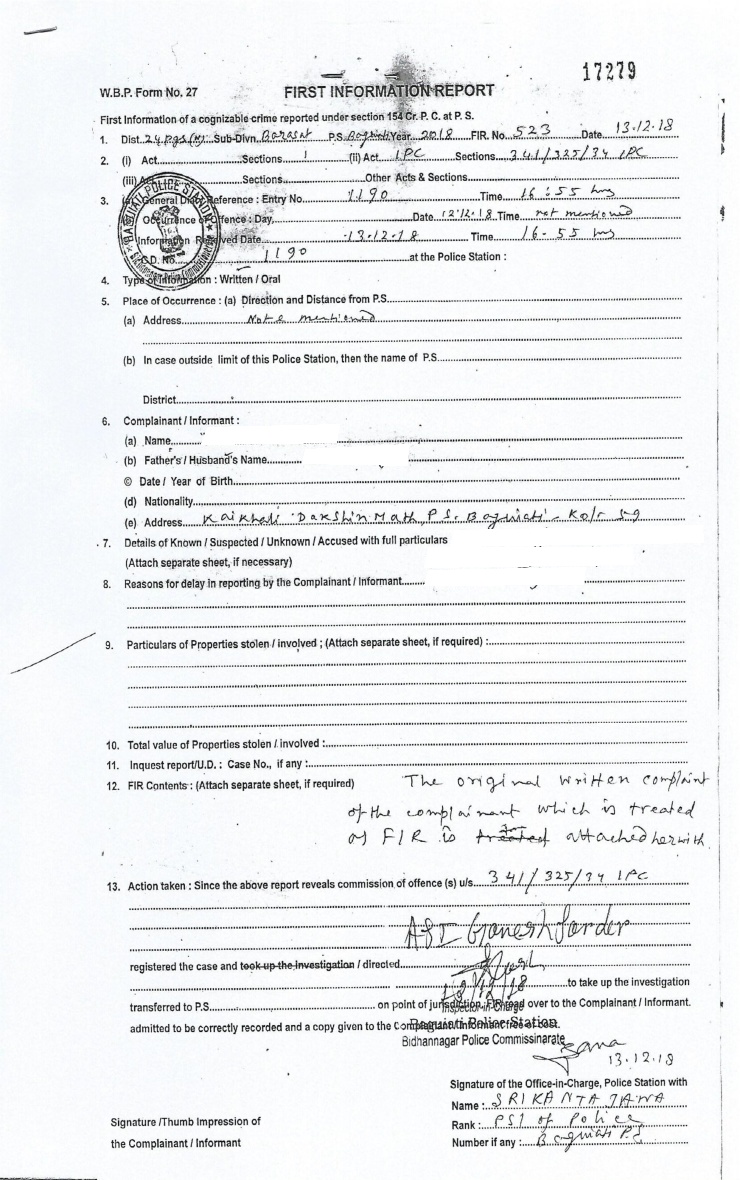 17279
W.B.P. Form No. 27
FIRST INFORMATION REPORT
First Information of a cognizable crime reported under section 154 Cr. P. C. at P. S.
1. Dist. 24 pgs (N) Sub-Divn. Barasat P.S. Baguiati Year 2018 FIR. No. 523 Date 13.12.18
2. (i) Act Sections (ii) Act IPC Sections 341/325/34 IPC
(iii) Act Sections Other Acts & Sections
3. (a) General Diary Reference : Entry No. 1190 Time 16:55 hrs
Occurrence of Offence : Day, Date 12.12.18 Time not mentioned
Information Received Date 13.12.18 Time 16-55 hrs
G.D. No. 1190 at the Police Station :
BAGUIATI POLICE STATION
4. Type of Information : Written / Oral
5. Place of Occurrence : (a) Direction and Distance from P.S.
(a) Address Note mentioned
(b) In case outside limit of this Police Station, then the name of P.S.
District
6. Complainant / Informant :
(a) Name
(b) Father's / Husband's Name
© Date / Year of Birth
(d) Nationality
(e) Address Kaikhali Dakshin Math, P.S. Baguiati - Kol- 59
7. Details of Known / Suspected / Unknown / Accused with full particulars
(Attach separate sheet, if necessary)
8. Reasons for delay in reporting by the Complainant / Informant
9. Particulars of Properties stolen / involved ; (Attach separate sheet, if required) :
10. Total value of Properties stolen / involved :
11. Inquest report/U.D. : Case No., if any :
12. FIR Contents : (Attach separate sheet, if required) The original written complaint
of the complainant which is treated
as FIR is attached herwith
13. Action taken : Since the above report reveals commission of offence (s) u/s. 341/325/34 IPC
ASI Ganesh Sarder
registered the case and took up the investigation / directed
13/12/18 to take up the investigation
Inspector-in-Charge
transferred to P.S. on point of jurisdiction, FIR read over to the Complainant / Informant.
admitted to be correctly recorded and a copy given to the Complainant/Informant free of cost.
Baguiati Police Station
Bidhannagar Police Commissinarate
13.12.18
Signature of the Office-in-Charge, Police Station with
Name : SRIKANTA JANA
Signature /Thumb Impression of
Rank : PSI of Police
the Complainant / Informant
Number if any : Baguiati P.S